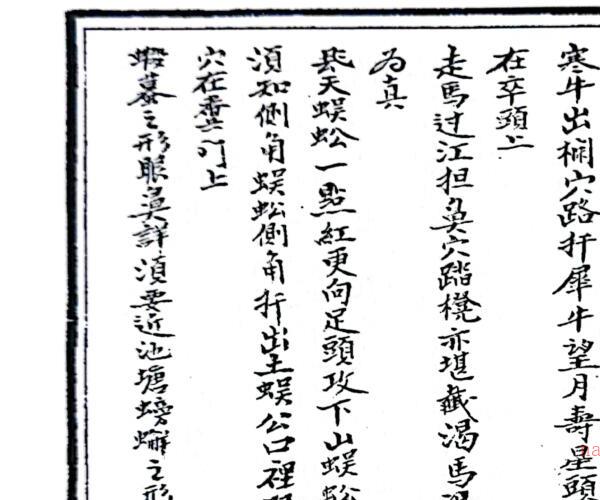 寒牛出欄穴路扦犀牛望月壽星頭
在卒頭上
走馬过江担真穴踏櫈亦堪截渴馬
为真
天蜈蚣一點紅更向足頭攻下山蜈蚣
須知側角蜈蚣側角扦出土蜈公口裡
穴在糞门上
蝦蟇之形眼莫詳湏要近池塘螃蠏之形